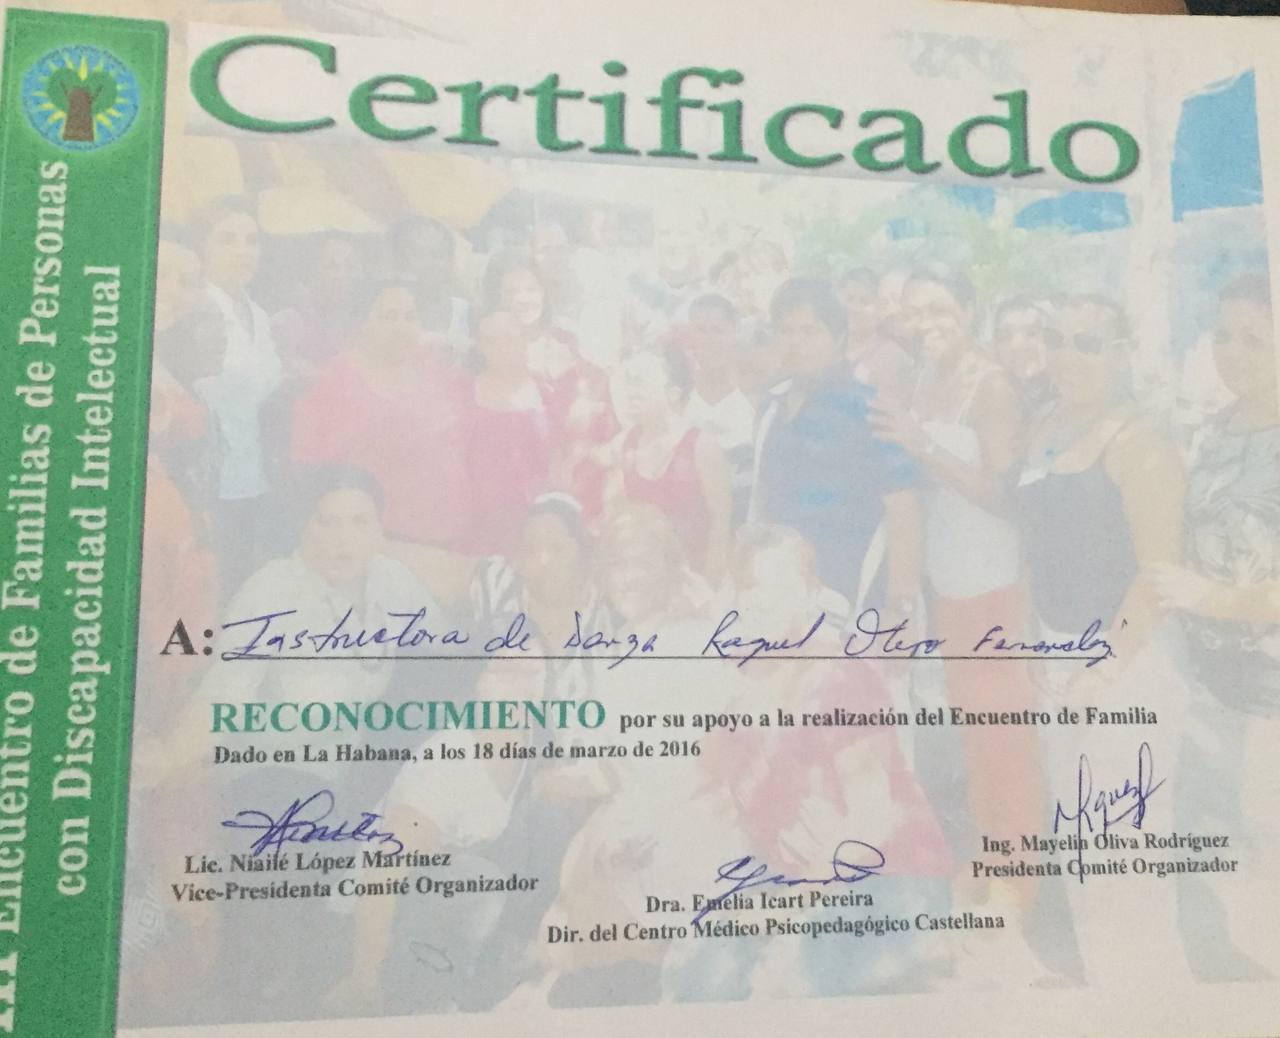 Certificado
Encuentro de Familias de Personas
con Discapacidad Intelectual
A: Instructora de Danza Raquel Otero Fernandez
RECONOCIMIENTO por su apoyo a la realización del Encuentro de Familia
Dado en La Habana, a los 18 días de marzo de 2016
Lic. Niailé López Martínez
Vice-Presidenta Comité Organizador
Dra. Emelia Icart Pereira
Dir. del Centro Médico Psicopedagógico Castellana
Ing. Mayelin Oliva Rodríguez
Presidenta Comité Organizador